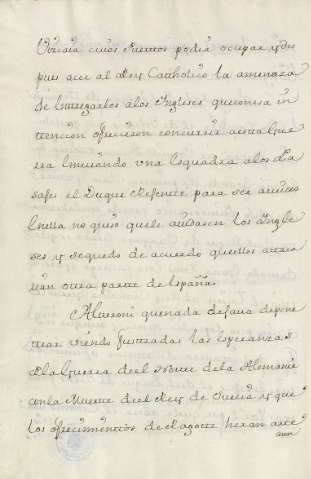 cuios Puertos podia ocupar y des
pues acer al Rey Catholico la amenaza
de entregarlos alos Ingleses quecon esa in
tencion ofrecieron concurrir aesta Gue
rra enviando una Esquadra alos
el Duque Regente para ser
no quiso quele aiudasen los Yngle
ses y se quedo de acuerdo quellos attaca
rian otra parte de España.
Alveroni quenada dejava de pene
trar viendo frustradas las esperanzas
dela Guerra deel Norte dela Alemania
conla Muerte deel Rey de Suecia y que
los ofrecimientos de Ragotzi heran